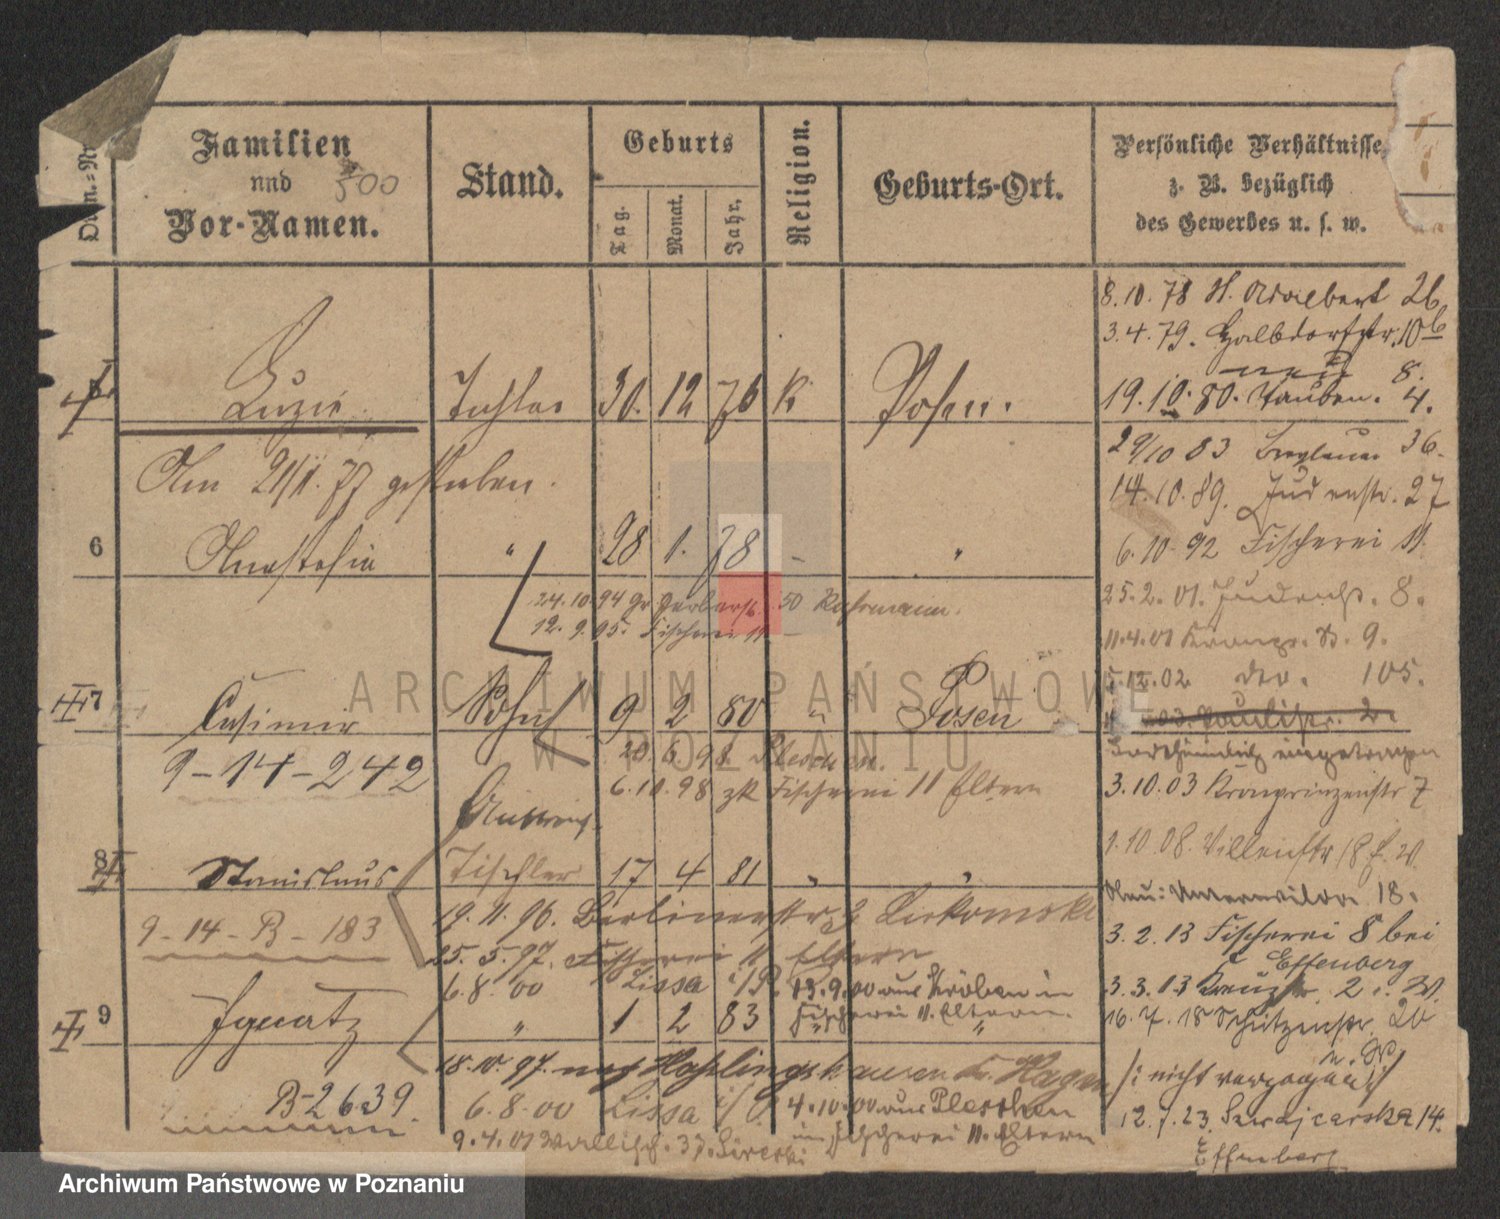 Familien
und 500
Vor-Namen.
Stand.
Geburts
Tag.
Monat.
Jahr.
Religion.
Geburts-Ort.
Persönliche Verhältnisse
z. B. bezüglich
des Gewerbes u. s. w.
8.10.78 H. Adalbert 26
3.4.79. Halbdorfstr. 10b
neu 8.
Luzie Tochter 30. 12 76 k Posen.
19.10.80. Tauben. 4.
Am 21/1. 77 gestorben.
29/10 83 36.
14.10.89. Judenstr. 27
6 Anastasia " 28 1. 78 - "
6.10.92 Fischerei 11.
24.10.94 Gr Gerberst. 50
12.9.95. Fischerei 11
25.2.01. Judenstr. 8.
11.4.01 9.
5.12.02 105.
7 Casimir Sohn 9 2 80 " Posen
03. Paulistr. 2.
9-14-242
20.6.98. Pleschen.
irrthümlich eingetragen
6.10.98 zk Fischerei 11 Eltern
3.10.03 Kronprinzenstr 7
1.10.08. Villenstr 18
8 Stanislaus Tischler 17 4 81 " "
Neu: 18.
9-14-B-183
19.11.96. Berlinerstr. 2
25.5.97. Fischerei 11 Eltern
3.2.13 Fischerei 8 bei
Effenberg
6.8.00 Lissa i/P. 13.9.00 aus Kröben in
Fischerei 11. Eltern.
3.3.13 Kreuzstr. 2
9 Ignatz " 1 2 83 " "
16.7.18 Schützenstr. 20
18.10.97. nach Hasslinghausen Kr. Hagen
/: nicht verzogen :/
B-2639
6.8.00 Lissa i/P. 4.10.00 aus Pleschen
in Fischerei 11. Eltern
12.7.23. 14.
9.4.01 Wallisch. 37.
Effenberg
ARCHIWUM PAŃSTWOWE
W POZNANIU
Archiwum Państwowe w Poznaniu